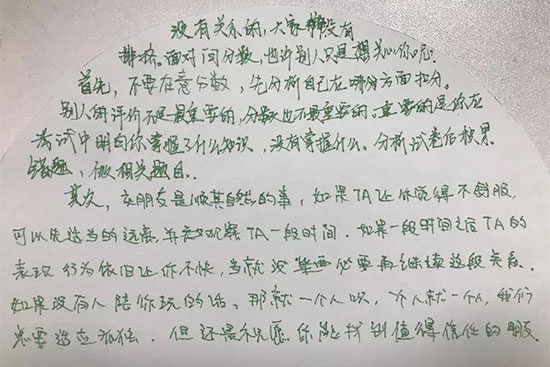 没有关系的,大家都没有
排挤。面对问分数,也许别人只是想关心你呢。
首先,不要在意分数,先分析自己在哪部分方面扣分。
别人的评价不是最重要的,分数也不是最重要的。重要的是你在
考试中明白你掌握了什么知识,没有掌握什么。分析试卷后
错题,做相关题目。
其次,交朋友是顺其自然的事,如果TA让你觉得不舒服,
可以先适当的远离,并去观察TA一段时间。如果一段时间之后TA的
表现行为依旧让你不快,当就没必要再继续这段关系。
如果没有人陪你玩的话,那就一个人呗,个人就一个人,我们
总要适应孤独。但还是祝愿你能找到值得信任的朋友